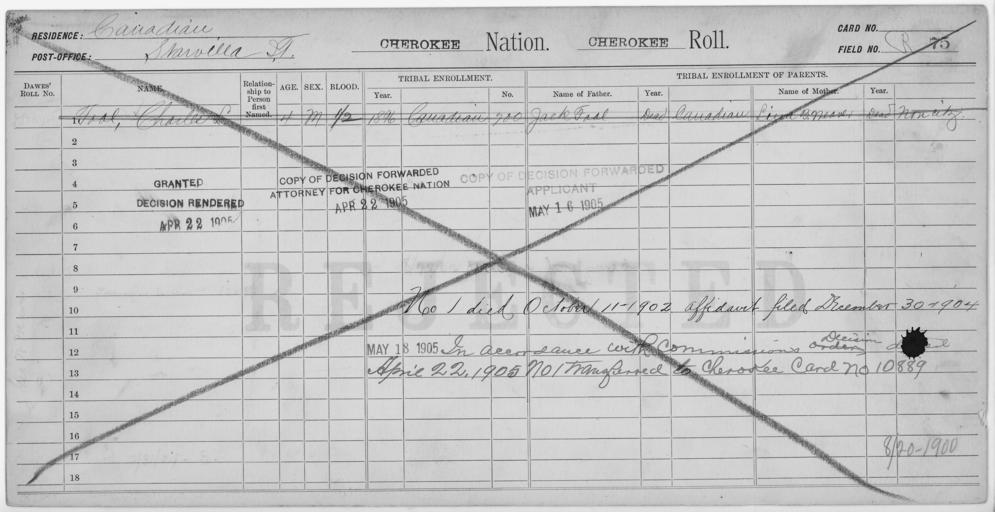 RESIDENCE: Canadian
POST-OFFICE: Starvilla I.T.
CHEROKEE Nation. CHEROKEE Roll.
CARD NO.
FIELD NO. R 75
DAWES' ROLL NO. NAME. Relationship to Person first Named. AGE. SEX. BLOOD. TRIBAL ENROLLMENT. TRIBAL ENROLLMENT OF PARENTS.
Year. No. Name of Father. Year. Name of Mother. Year.
1 Fool, Charles 4 M 1/2 1896 Canadian 700 Jack Fool Dead Canadian Dead Non citz.
2
3
4
GRANTED
COPY OF DECISION FORWARDED
ATTORNEY FOR CHEROKEE NATION
APR 22 1905
COPY OF DECISION FORWARDED
APPLICANT
MAY 16 1905
5
DECISION RENDERED
6
APR 22 1905
7
8
REJECTED
9
10 No 1 died October 11-1902 affidavit filed December 30-1904
11
12 MAY 18 1905 In accordance with Commissions Decision
13 April 22, 1905 No 1 transferred to Cherokee Card No 10889
14
15
16
8/20-1900
17
18